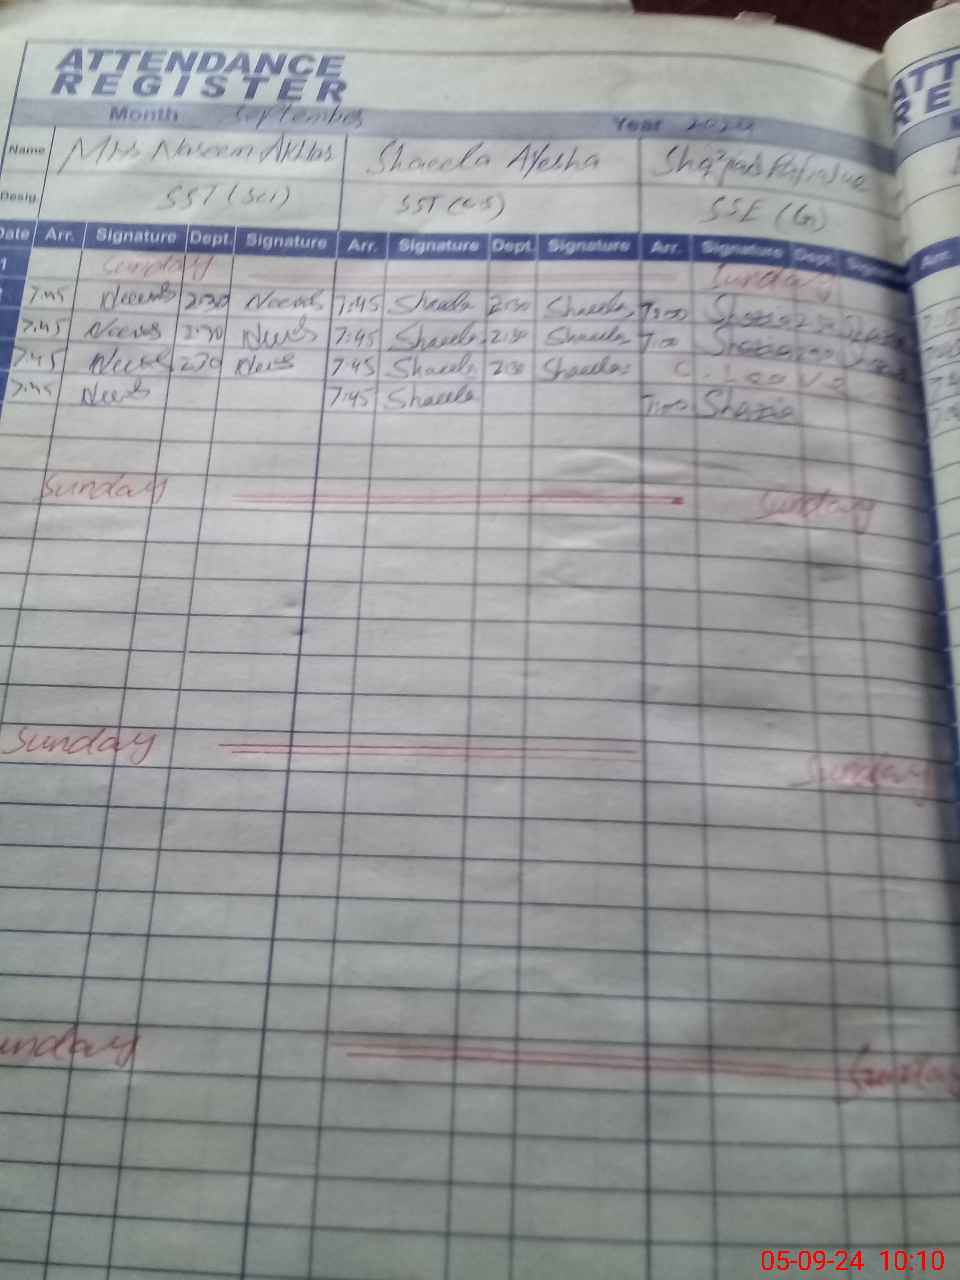 ATTENDANCE
REGISTER
ATT
RE
Month September Year 2024
Name Mrs Naseem Akhtar Shaeela Ayesha
Desig. SST (Sci) SST (CS) SSE (G)
Date Arr. Signature Dept. Signature Arr. Signature Dept. Signature Arr. Signature Dept. Signature Arr.
1 Sunday Sunday
7:45 2:30 7:45 Shaeela 2:30 Shaeela 7:00 Shazia
7:45 2:30 7:45 Shaeela 2:30 Shaeela 7:00 Shazia
7:45 2:30 7:45 Shaeela 2:30 Shaeela C. Leave
7:45 7:45 Shaeela 7:00 Shazia
Sunday Sunday
Sunday Sunday
unday Sunday
05-09-24 10:10